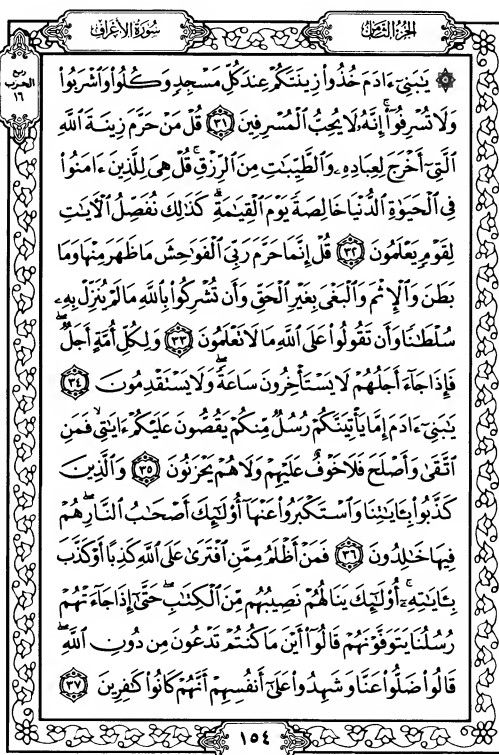 سُورَةُ الأَعْرَافِ
الجُزْءُ الثَّامِنُ
ربع
الحزب
١٦
۞ يَٰبَنِىٓ ءَادَمَ خُذُوا۟ زِينَتَكُمْ عِندَ كُلِّ مَسْجِدٍ وَكُلُوا۟ وَٱشْرَبُوا۟
وَلَا تُسْرِفُوٓا۟ ۚ إِنَّهُۥ لَا يُحِبُّ ٱلْمُسْرِفِينَ ٣١ قُلْ مَنْ حَرَّمَ زِينَةَ ٱللَّهِ
ٱلَّتِىٓ أَخْرَجَ لِعِبَادِهِۦ وَٱلطَّيِّبَٰتِ مِنَ ٱلرِّزْقِ ۚ قُلْ هِىَ لِلَّذِينَ ءَامَنُوا۟
فِى ٱلْحَيَوٰةِ ٱلدُّنْيَا خَالِصَةً يَوْمَ ٱلْقِيَٰمَةِ ۗ كَذَٰلِكَ نُفَصِّلُ ٱلْءَايَٰتِ
لِقَوْمٍ يَعْلَمُونَ ٣٢ قُلْ إِنَّمَا حَرَّمَ رَبِّىَ ٱلْفَوَٰحِشَ مَا ظَهَرَ مِنْهَا وَمَا
بَطَنَ وَٱلْإِثْمَ وَٱلْبَغْىَ بِغَيْرِ ٱلْحَقِّ وَأَن تُشْرِكُوا۟ بِٱللَّهِ مَا لَمْ يُنَزِّلْ بِهِۦ
سُلْطَٰنًا وَأَن تَقُولُوا۟ عَلَى ٱللَّهِ مَا لَا تَعْلَمُونَ ٣٣ وَلِكُلِّ أُمَّةٍ أَجَلٌ ۖ
فَإِذَا جَآءَ أَجَلُهُمْ لَا يَسْتَأْخِرُونَ سَاعَةً ۖ وَلَا يَسْتَقْدِمُونَ ٣٤
يَٰبَنِىٓ ءَادَمَ إِمَّا يَأْتِيَنَّكُمْ رُسُلٌ مِّنكُمْ يَقُصُّونَ عَلَيْكُمْ ءَايَٰتِى ۙ فَمَنِ
ٱتَّقَىٰ وَأَصْلَحَ فَلَا خَوْفٌ عَلَيْهِمْ وَلَا هُمْ يَحْزَنُونَ ٣٥ وَٱلَّذِينَ
كَذَّبُوا۟ بِـَٔايَٰتِنَا وَٱسْتَكْبَرُوا۟ عَنْهَآ أُو۟لَٰٓئِكَ أَصْحَٰبُ ٱلنَّارِ ۖ هُمْ
فِيهَا خَٰلِدُونَ ٣٦ فَمَنْ أَظْلَمُ مِمَّنِ ٱفْتَرَىٰ عَلَى ٱللَّهِ كَذِبًا أَوْ كَذَّبَ
بِـَٔايَٰتِهِۦٓ ۚ أُو۟لَٰٓئِكَ يَنَالُهُمْ نَصِيبُهُم مِّنَ ٱلْكِتَٰبِ ۖ حَتَّىٰٓ إِذَا جَآءَتْهُمْ
رُسُلُنَا يَتَوَفَّوْنَهُمْ قَالُوٓا۟ أَيْنَ مَا كُنتُمْ تَدْعُونَ مِن دُونِ ٱللَّهِ ۖ
قَالُوا۟ ضَلُّوا۟ عَنَّا وَشَهِدُوا۟ عَلَىٰٓ أَنفُسِهِمْ أَنَّهُمْ كَانُوا۟ كَٰفِرِينَ ٣٧
١٥٤